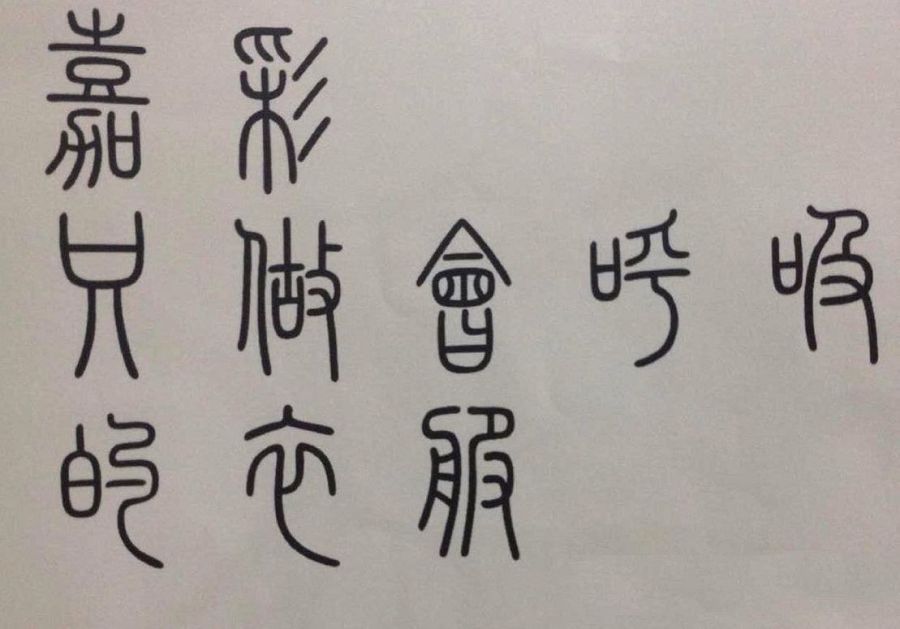 嘉彩
只做會呼吸
的衣服